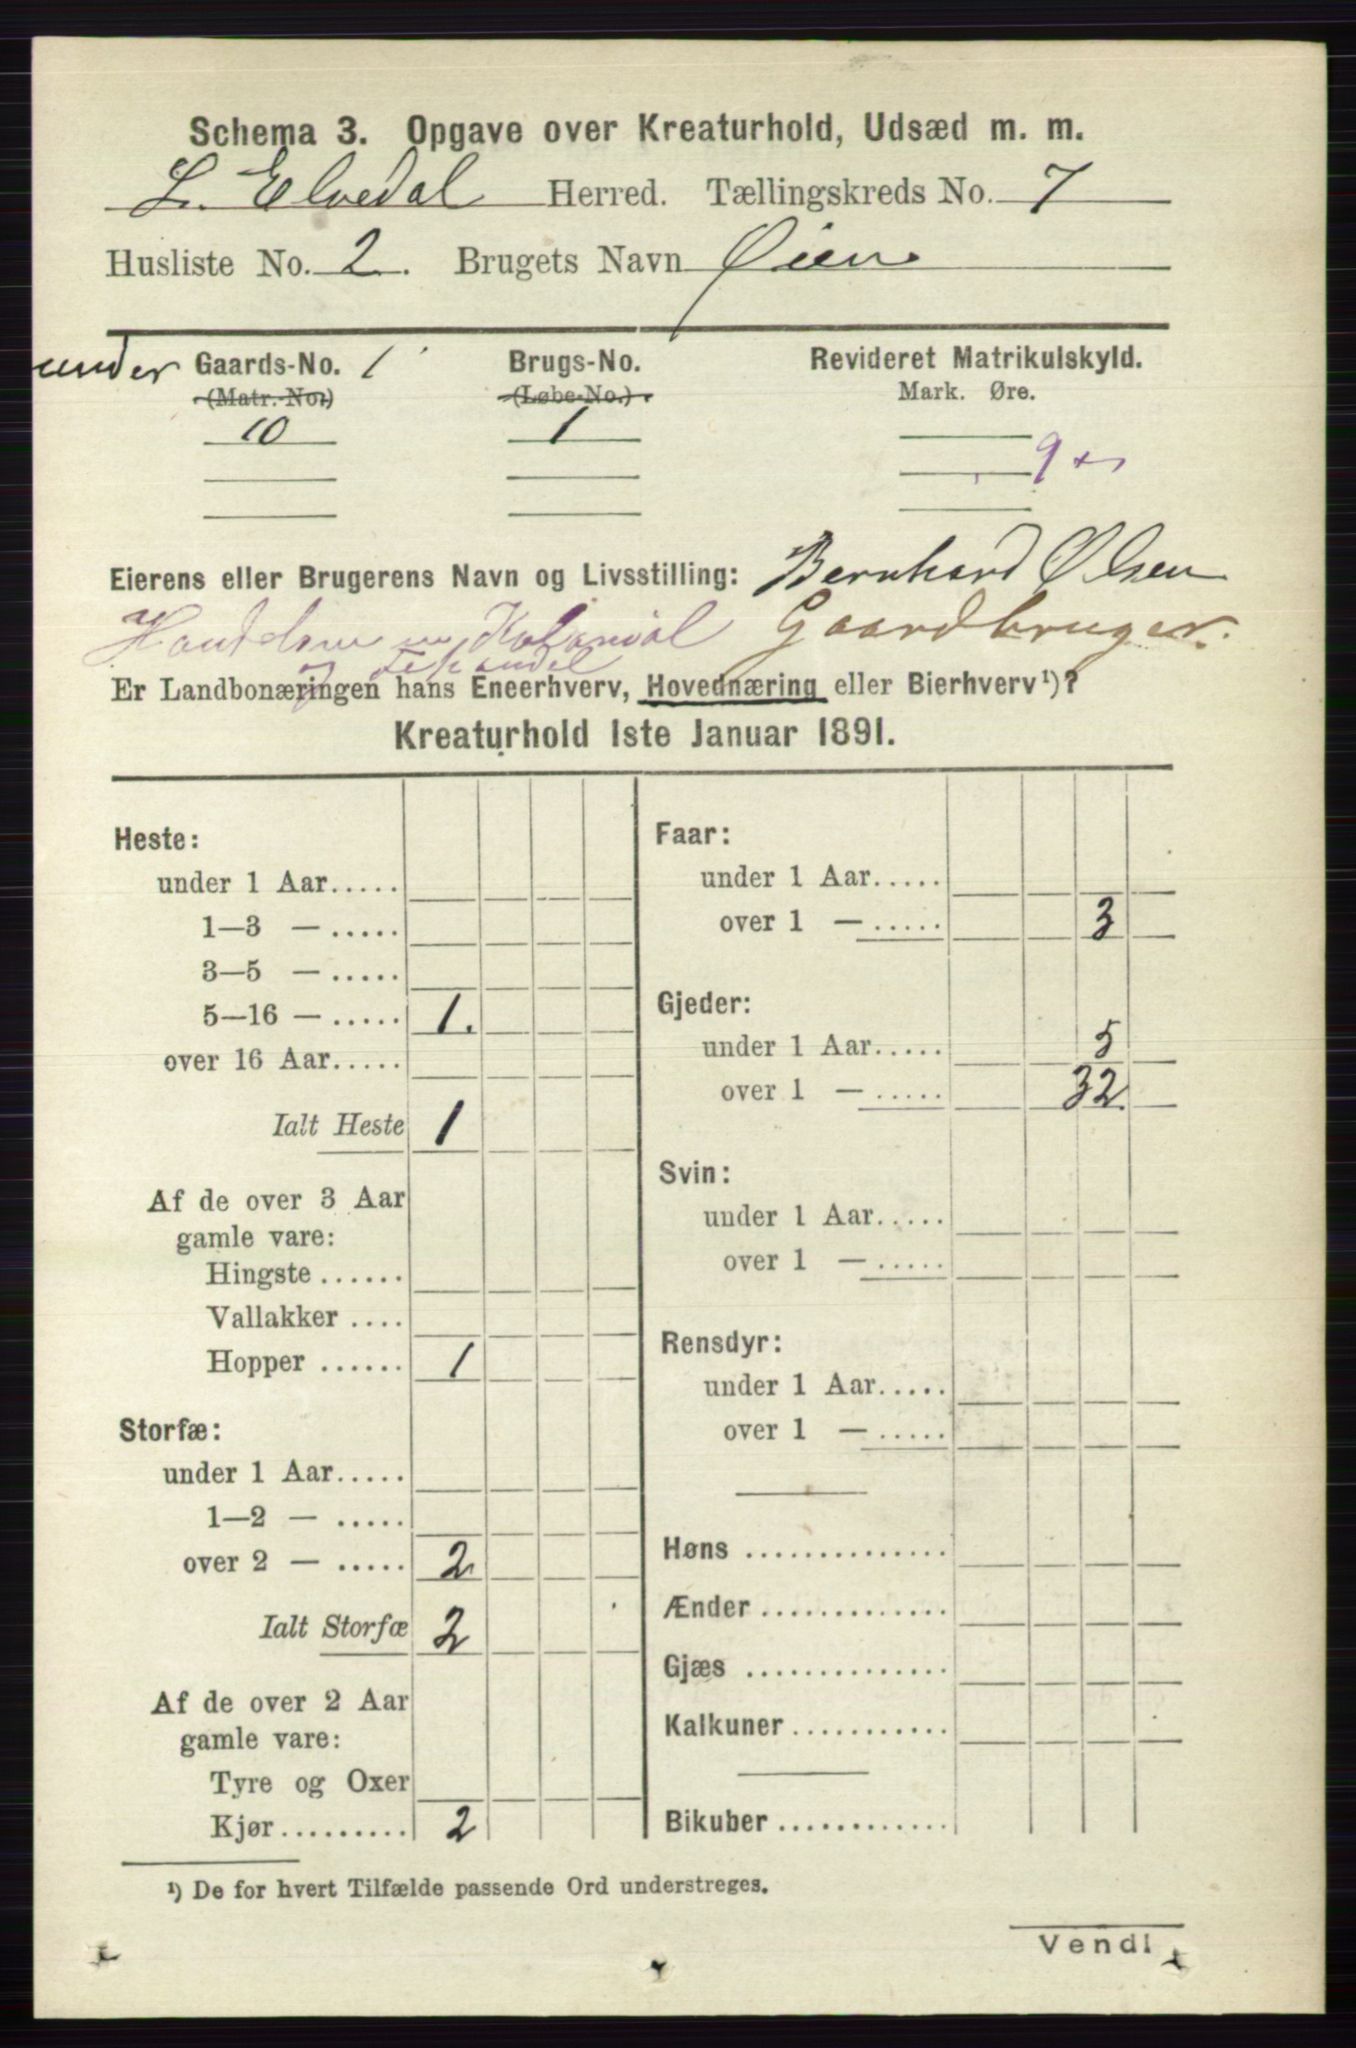 Schema 3. Opgave over Kreaturhold, Udsæd m. m.
L. Elvedal Herred. Tællingskreds No. 7
Husliste No. 2. Brugets Navn Øien
under Gaards-No. 1 Brugs-No. Revideret Matrikulskyld.
(Matr.-No.) (Løbe-No.) Mark. Øre.
10 1
9
Eierens eller Brugerens Navn og Livsstilling: Bernhard Olsen
Kolonial Gaardbruger.
Er Landbonæringen hans Eneerhverv, Hovednæring eller Bierhverv¹)?
Kreaturhold 1ste Januar 1891.
Heste:
under 1 Aar.....
1—3 — .....
3—5 — .....
5—16 — ..... 1.
over 16 Aar.....
Ialt Heste 1
Af de over 3 Aar
gamle vare:
Hingste ......
Vallakker ....
Hopper ...... 1
Storfæ:
under 1 Aar.....
1—2 — .....
over 2 — ..... 2
Ialt Storfæ 2
Af de over 2 Aar
gamle vare:
Tyre og Oxer
Kjør.......... 2
Faar:
under 1 Aar.....
over 1 — ..... 3
Gjeder:
under 1 Aar..... 5
over 1 — ..... 32
Svin:
under 1 Aar.....
over 1 — .....
Rensdyr:
under 1 Aar.....
over 1 — .....
Høns ..............
Ænder .............
Gjæs ..............
Kalkuner...........
Bikuber ............
¹) De for hvert Tilfælde passende Ord understreges.
Vend!